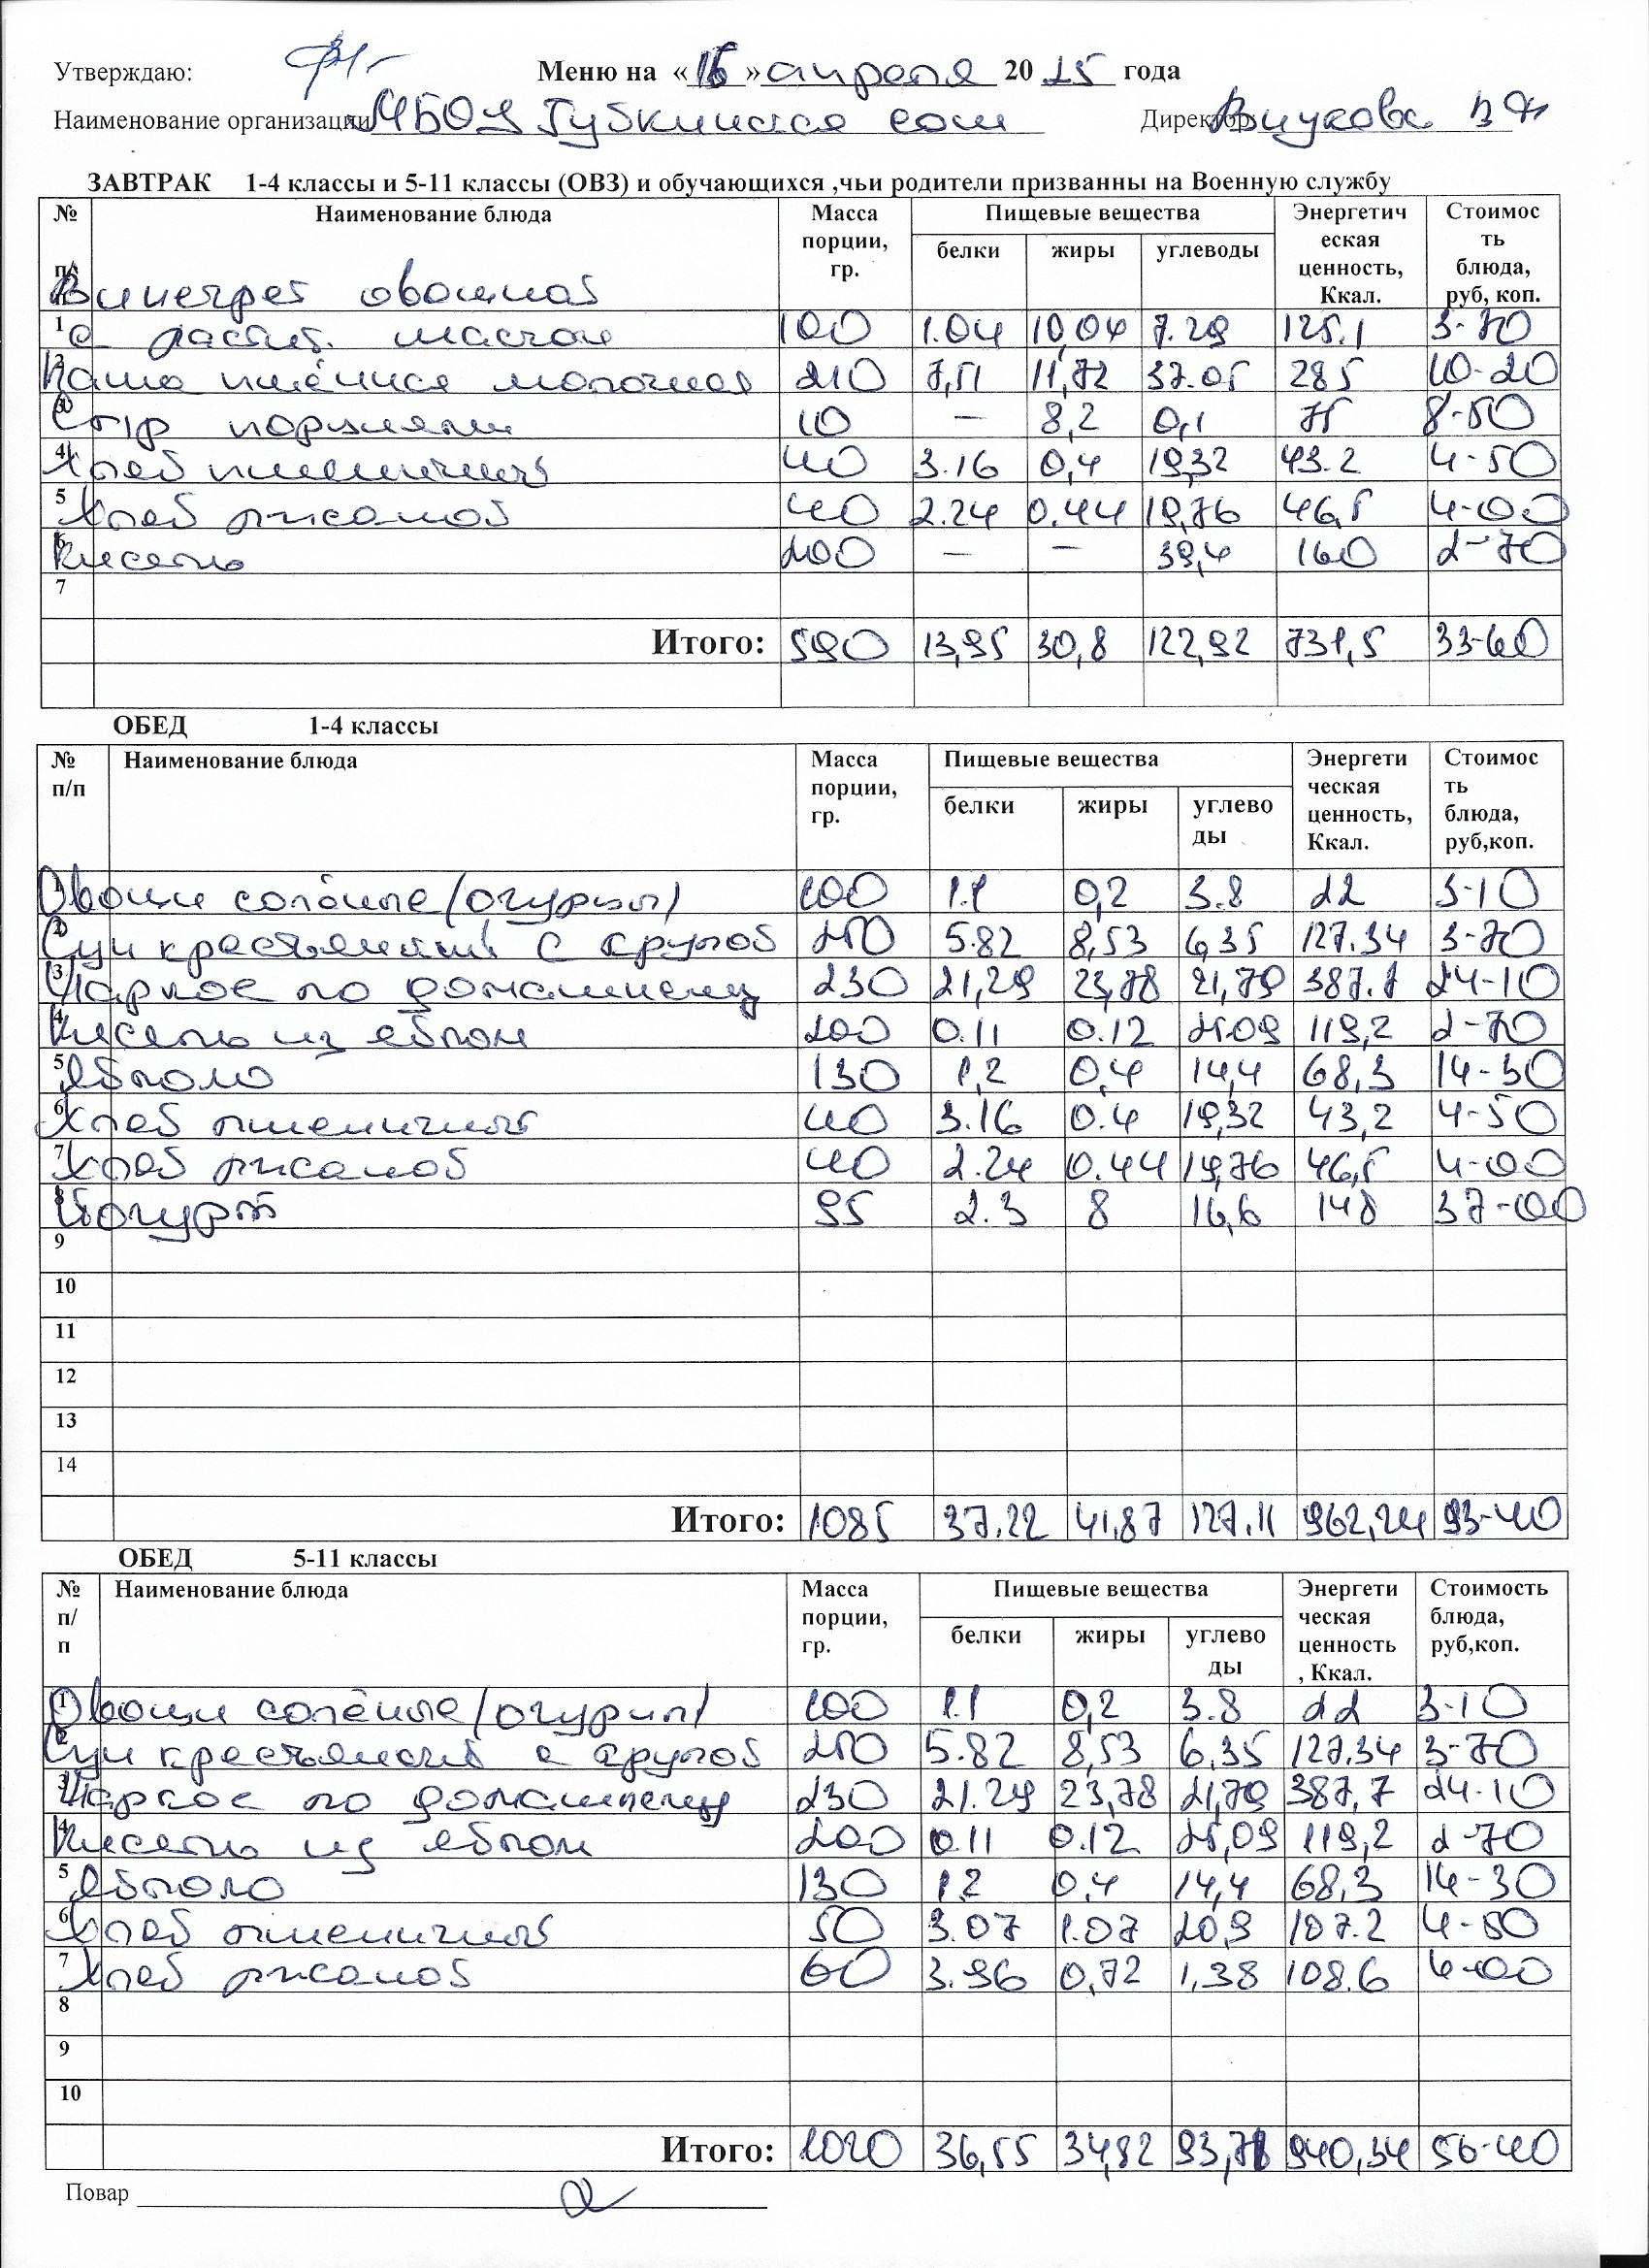 Утверждаю: Меню на «16» апреля 2025 года
Наименование организации МБОУ Губкинская сош Директор Внукова
ЗАВТРАК 1-4 классы и 5-11 классы (ОВЗ) и обучающихся ,чьи родители призванны на Военную службу
№ п/п Наименование блюда Масса порции, гр. Пищевые вещества Энергетическая ценность, Ккал. Стоимость блюда, руб, коп.
белки жиры углеводы
Винегрет овощной
1 с растит. маслом 100 1.04 10,04 7.29 125.1 3-70
2 Каша пшённая молочная 210 7,51 11,72 37.05 285 10-20
3 Сыр порциями 10 – 8,2 0,1 75 8-50
4 Хлеб пшеничный 40 3.16 0,4 19,32 43.2 4-50
5 Хлеб ржаной 40 2.24 0.44 19,76 46,5 4-00
6 Кисель 200 – – 39,4 160 2-70
7
Итого: 590 13,95 30,8 122,92 731,5 33-60
ОБЕД 1-4 классы
№ п/п Наименование блюда Масса порции, гр. Пищевые вещества Энергетическая ценность, Ккал. Стоимость блюда, руб,коп.
белки жиры углеводы
1 Овощи солёные (огурцы) 100 1.1 0,2 3.8 22 3-10
2 Суп крестьянский с крупой 250 5.82 8,53 6,35 127.34 3-70
3 Жаркое по домашнему 230 21,29 23,78 21,79 387.7 24-10
4 Кисель из яблок 200 0.11 0.12 25.09 119,2 2-70
5 Яблоко 130 1,2 0,4 14,4 68,3 14-30
6 Хлеб пшеничный 40 3.16 0.4 19,32 43,2 4-50
7 Хлеб ржаной 40 2.24 0.44 19,76 46,5 4-00
8 Йогурт 95 2.3 8 16,6 148 37-00
9
10
11
12
13
14
Итого: 1085 37.22 41,87 127.11 962,24 93-40
ОБЕД 5-11 классы
№ п/п Наименование блюда Масса порции, гр. Пищевые вещества Энергетическая ценность, Ккал. Стоимость блюда, руб,коп.
белки жиры углеводы
1 Овощи солёные (огурцы) 100 1.1 0,2 3.8 22 3-10
2 Суп крестьянский с крупой 250 5.82 8,53 6,35 127,34 3-70
3 Жаркое по домашнему 230 21.29 23,78 21,79 387,7 24-10
4 Кисель из яблок 200 0.11 0.12 25,09 119,2 2-70
5 Яблоко 130 1,2 0,4 14,4 68,3 14-30
6 Хлеб пшеничный 50 3.07 1.07 20,9 107.2 4-50
7 Хлеб ржаной 60 3.96 0,72 1,38 108.6 4-00
8
9
10
Итого: 1020 36,55 34,82 93,71 940,34 56-40
Повар